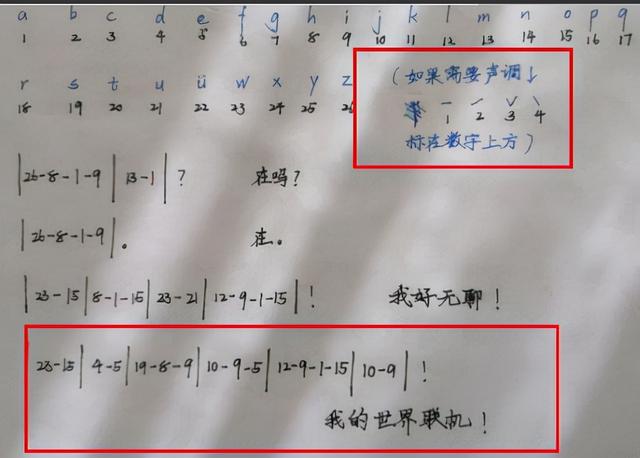 a b c d e f g h i j k l m n o p q
1 2 3 4 5 6 7 8 9 10 11 12 13 14 15 16 17
r s t u ü w x y z
18 19 20 21 22 23 24 25 26
(如果需要声调↓
ˉ ˊ ˇ ˋ
1 2 3 4
标在数字上方)
|26-8-1-9|13-1|? 在吗?
|26-8-1-9|。 在。
|23-15|8-1-15|23-21|12-9-1-15|! 我好无聊!
23-15|4-5|19-8-9|10-9-5|12-9-1-15|10-9|!
我的世界联机!